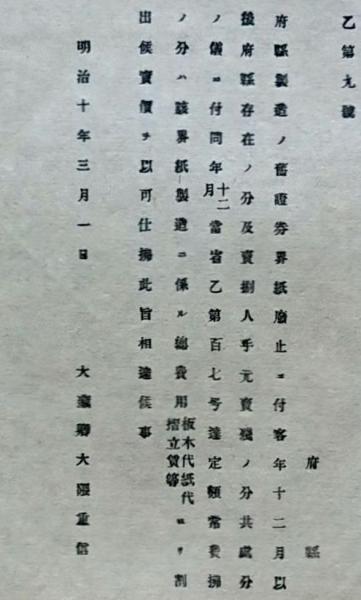 乙第九號
府縣
府縣製造ノ舊證券界紙廢止ニ付客年十二月以
後府縣存在ノ分及賣捌人手元賣殘ノ分共處分
ノ儀ニ付同年十二月當省乙第百七号達定額常費拂
ノ分ハ該界紙製造ニ係ル總費用板木代紙代摺立賃等ヨリ割
出候實價ヲ以可仕拂此旨相達候事
明治十年三月一日
大藏卿大隈重信